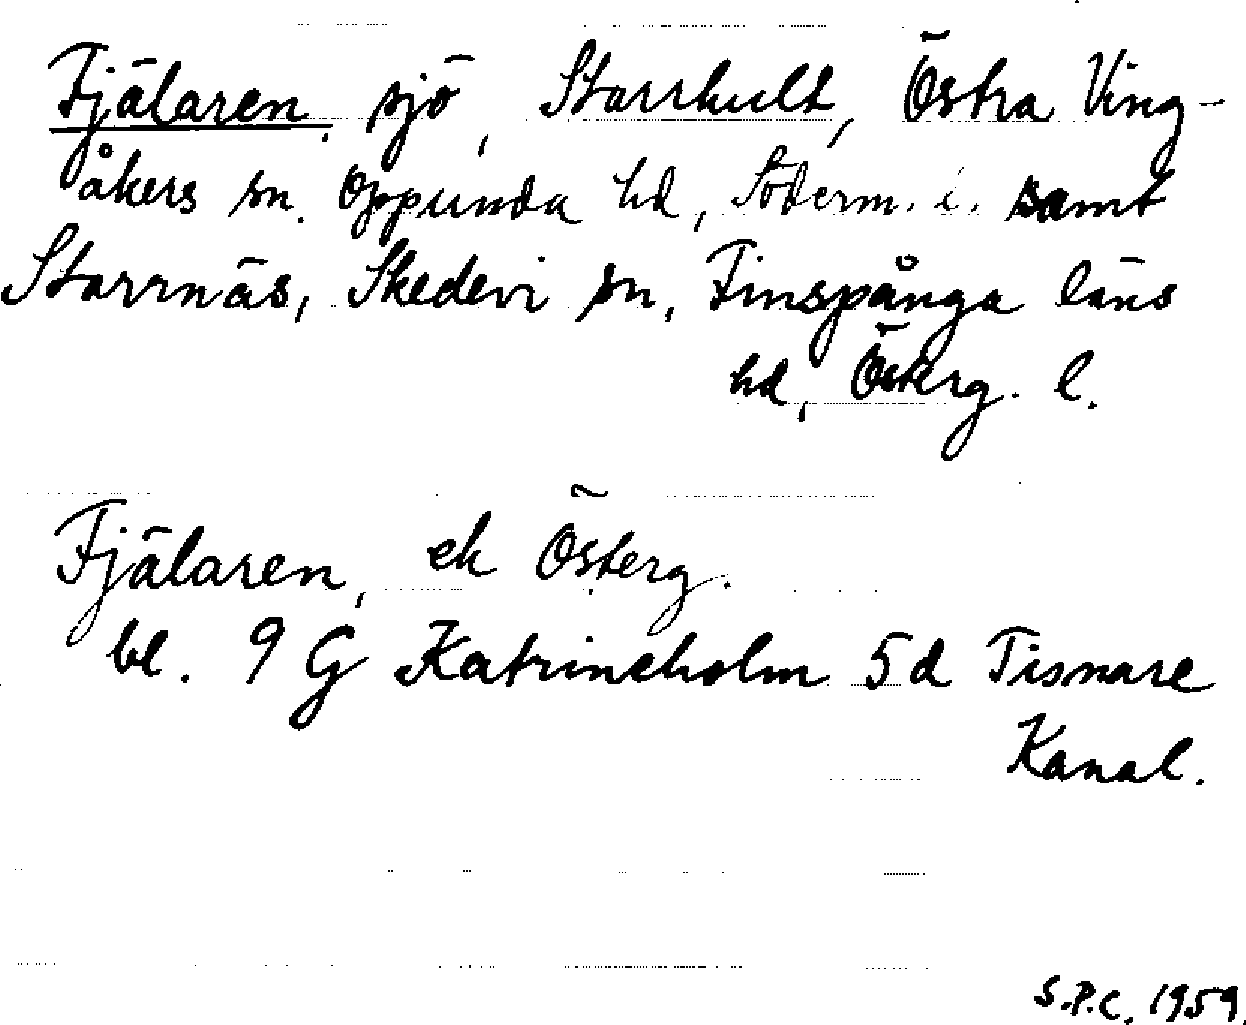 Fjälaren, sjö, Starrhult, Östra Ving-
åkers sn. Oppunda hd, Söderm. l. samt
Starrnäs, Skedevi sn, Finspånga läns
hd, Österg. l.
Fjälaren, ek Österg.
bl. 9 G Katrineholm 5d Tisnare
Kanal.
S.P.C. 1959.